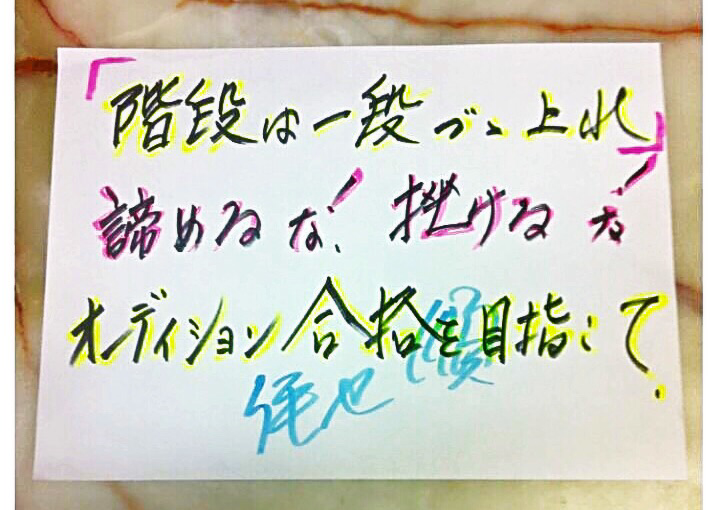 「階段は一段づゝ上れ」
諦めるな！挫けるな！
オーディション合格を目指して．